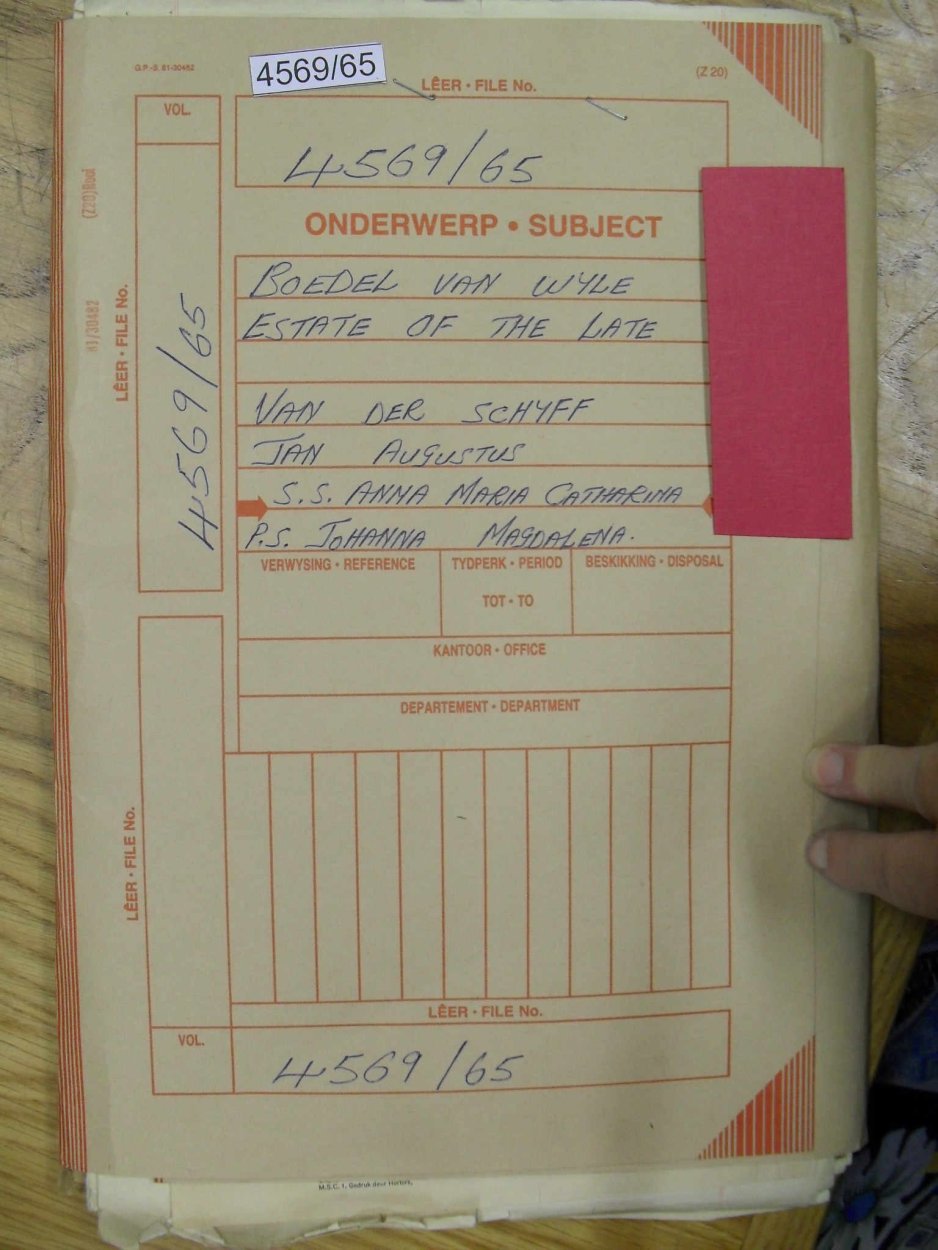 G.P.-S. 81-30482
4569/65
LÊER • FILE No.
(Z 20)
VOL.
4569/65
(Z20)Rooi
81/30482
LÊER • FILE No.
4569/65
ONDERWERP • SUBJECT
BOEDEL VAN WYLE
ESTATE OF THE LATE
VAN DER SCHYFF
JAN AUGUSTUS
S.S. ANNA MARIA CATHARINA
P.S. JOHANNA MAGDALENA.
VERWYSING • REFERENCE
TYDPERK • PERIOD
TOT • TO
BESKIKKING • DISPOSAL
KANTOOR • OFFICE
DEPARTEMENT • DEPARTMENT
LÊER • FILE No.
LÊER • FILE No.
VOL.
4569/65
M.S.C. 1. Gedruk deur Hortors,